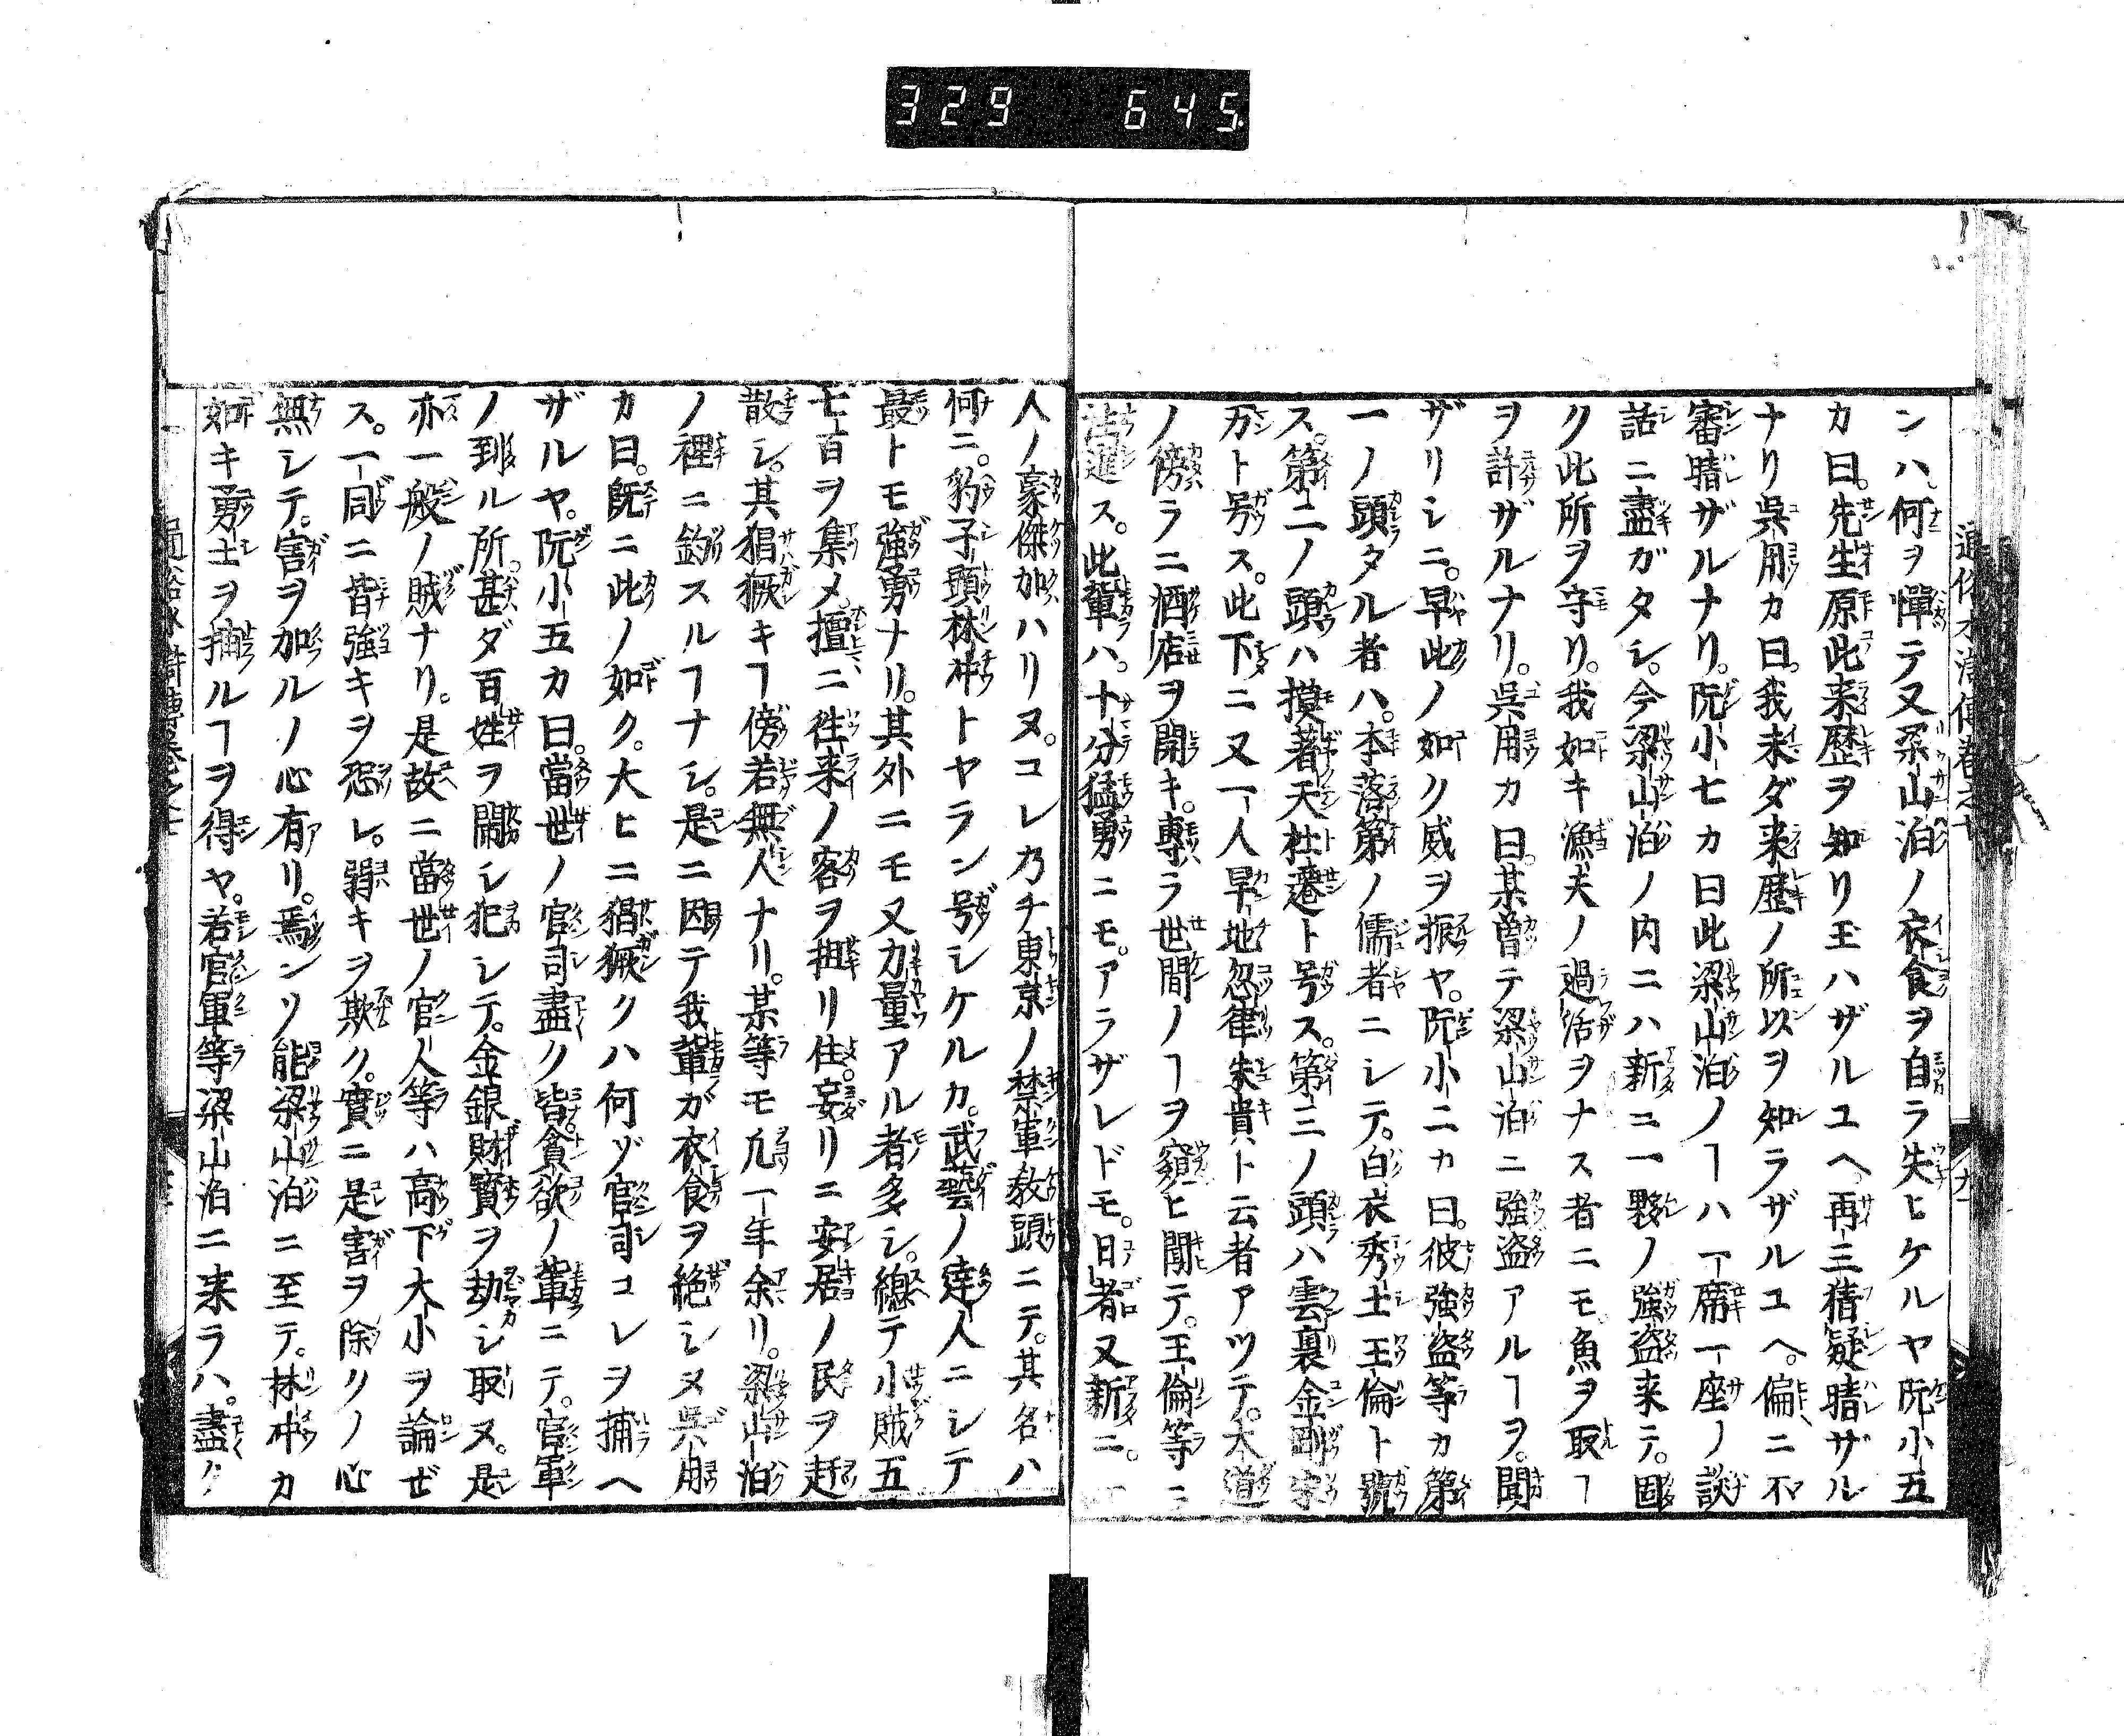 329 645
ンハ。何ヲ憚テ又梁山泊ノ衣食ヲ自ラ失ヒケルヤ阮小五
カ曰。先生原此来歴ヲ知リ玉ハザルユヘ再三猜疑晴ザル
ナリ呉用カ曰。我未ダ来歴ノ所以ヲ知ラザルユヘ。偏ニ不
審晴ザルナリ。阮小七カ曰此梁山泊ノヿハ一席一座ノ談
話ニ盡ガタシ。今梁山泊ノ内ニハ新ニ一夥ノ強盗来テ。固
ク此所ヲ守リ。我如キ漁夫ノ過活ヲナス者ニモ。魚ヲ取ヿ
ヲ許ザルナリ。呉用カ曰。某曽テ梁山泊ニ強盗アルヿヲ。聞
ザリシニ。早此ノ如ク威ヲ振ヤ。阮小二カ曰。彼強盗等カ第
一ノ頭タル者ハ。本落第ノ儒者ニシテ。白衣秀士王倫ト號
ス。第二ノ頭ハ摸著天杜遷ト号ス。第三ノ頭ハ雲裏金剛宋
万ト号ス。此下ニ又一人旱地忽律朱貴ト云者アツテ。大道
ノ傍ラニ酒店ヲ開キ。專ラ世間ノヿヲ窺ヒ聞テ。王倫等ニ
ス。此輩ハ。十分猛勇ニモ。アラザレドモ。日者又新ニ。一
人ノ豪傑加ハリヌ。コレ乃チ東京ノ禁軍教頭ニテ。其名ハ
何ニ。豹子頭林冲トヤラン号シケルカ。武藝ノ達人ニシテ
最トモ強勇ナリ。其外ニモ又力量アル者多シ。總テ小賊五
七百ヲ集メ。擅ニ往来ノ客ヲ担リ住。妄リニ安居ノ民ヲ赶
散シ。其猖獗キヿ傍若無人ナリ。某等モ凢一年余リ。梁山泊
ノ裡ニ釣スルヿナシ。是ニ因テ我輩ガ衣食ヲ絶シヌ呉用
カ曰。既ニ此ノ如ク。大ヒニ猖獗クハ何ゾ官司コレヲ捕ヘ
ザルヤ。阮小五カ曰。當世ノ官司盡ク皆。貪欲ノ輩ニテ。官軍
ノ到ル所。甚ダ百姓ヲ閙シ犯シテ。金銀財寳ヲ劫シ取ヌ。是
亦一般ノ賊ナリ。是故ニ當世ノ官人等ハ高下大小ヲ論ゼ
ス。一同ニ皆強キヲ恐レ。弱キヲ欺ク。實ニ是害ヲ除クノ心
無シテ。害ヲ加ルノ心有リ。焉ンソ能梁山泊ニ至テ。林冲カ
如キ勇士ヲ捕ルヿヲ得ヤ。若官軍等梁山泊ニ来ラハ。盡ク